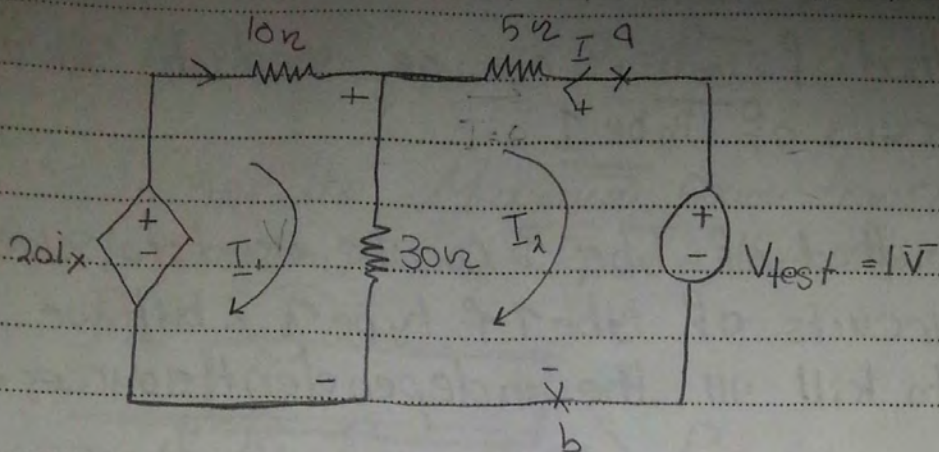 10Ω 5Ω I a
+ +
20ix + - I₁ V 30Ω I₂ + - Vtest = 1V
- -
b